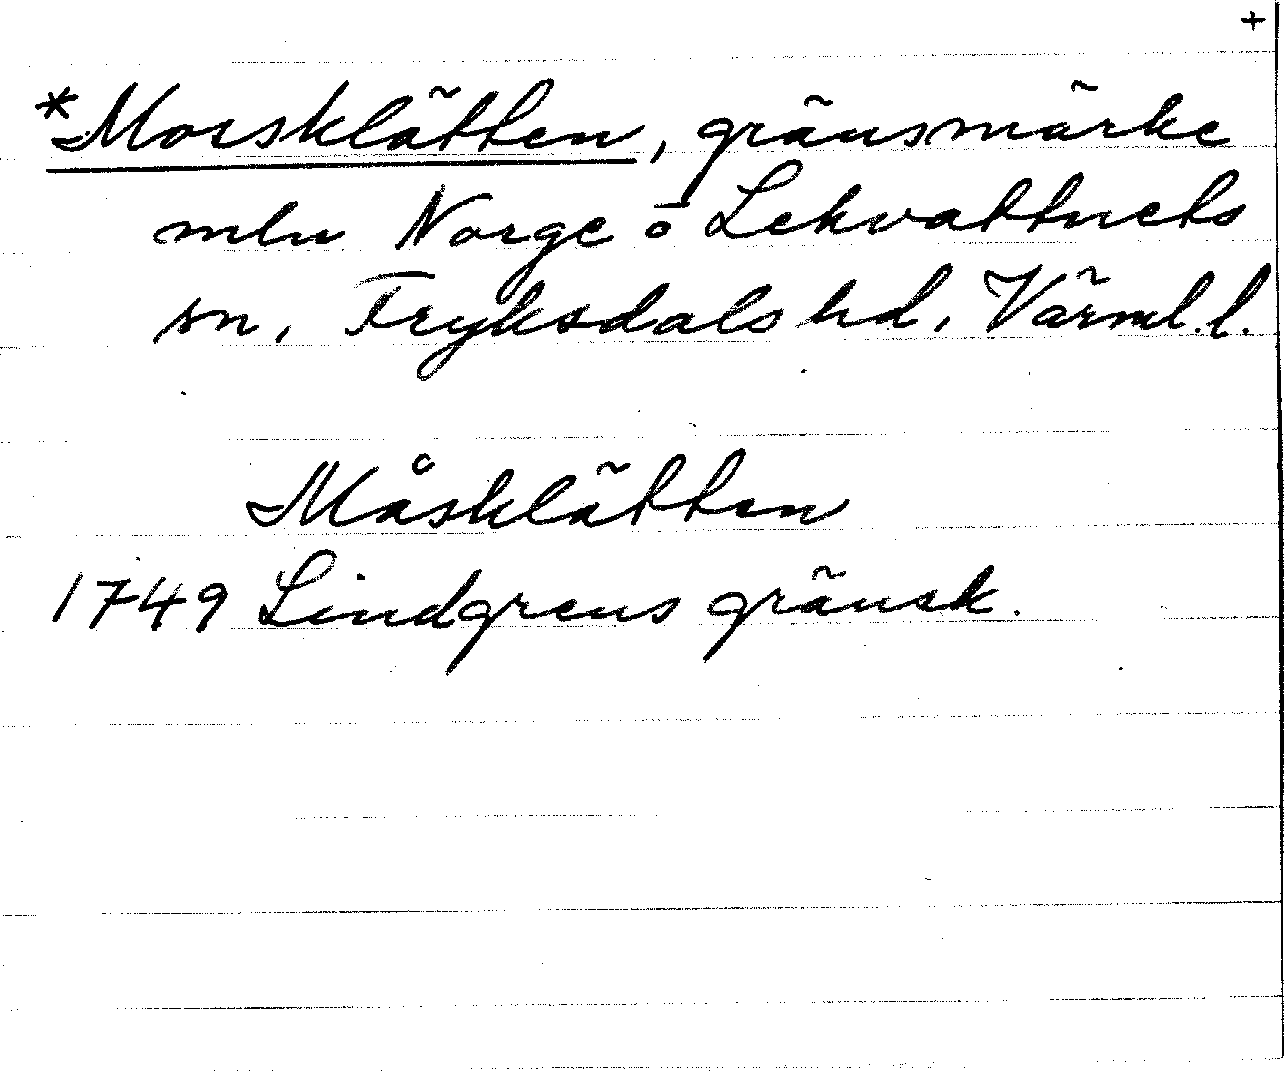 +
*Morsklätten, gränsmärke
mln Norge o Lekvattnets
sn, Fryksdals hd, Värml.l.
Måsklätten
1749 Lindgrens gränsk.